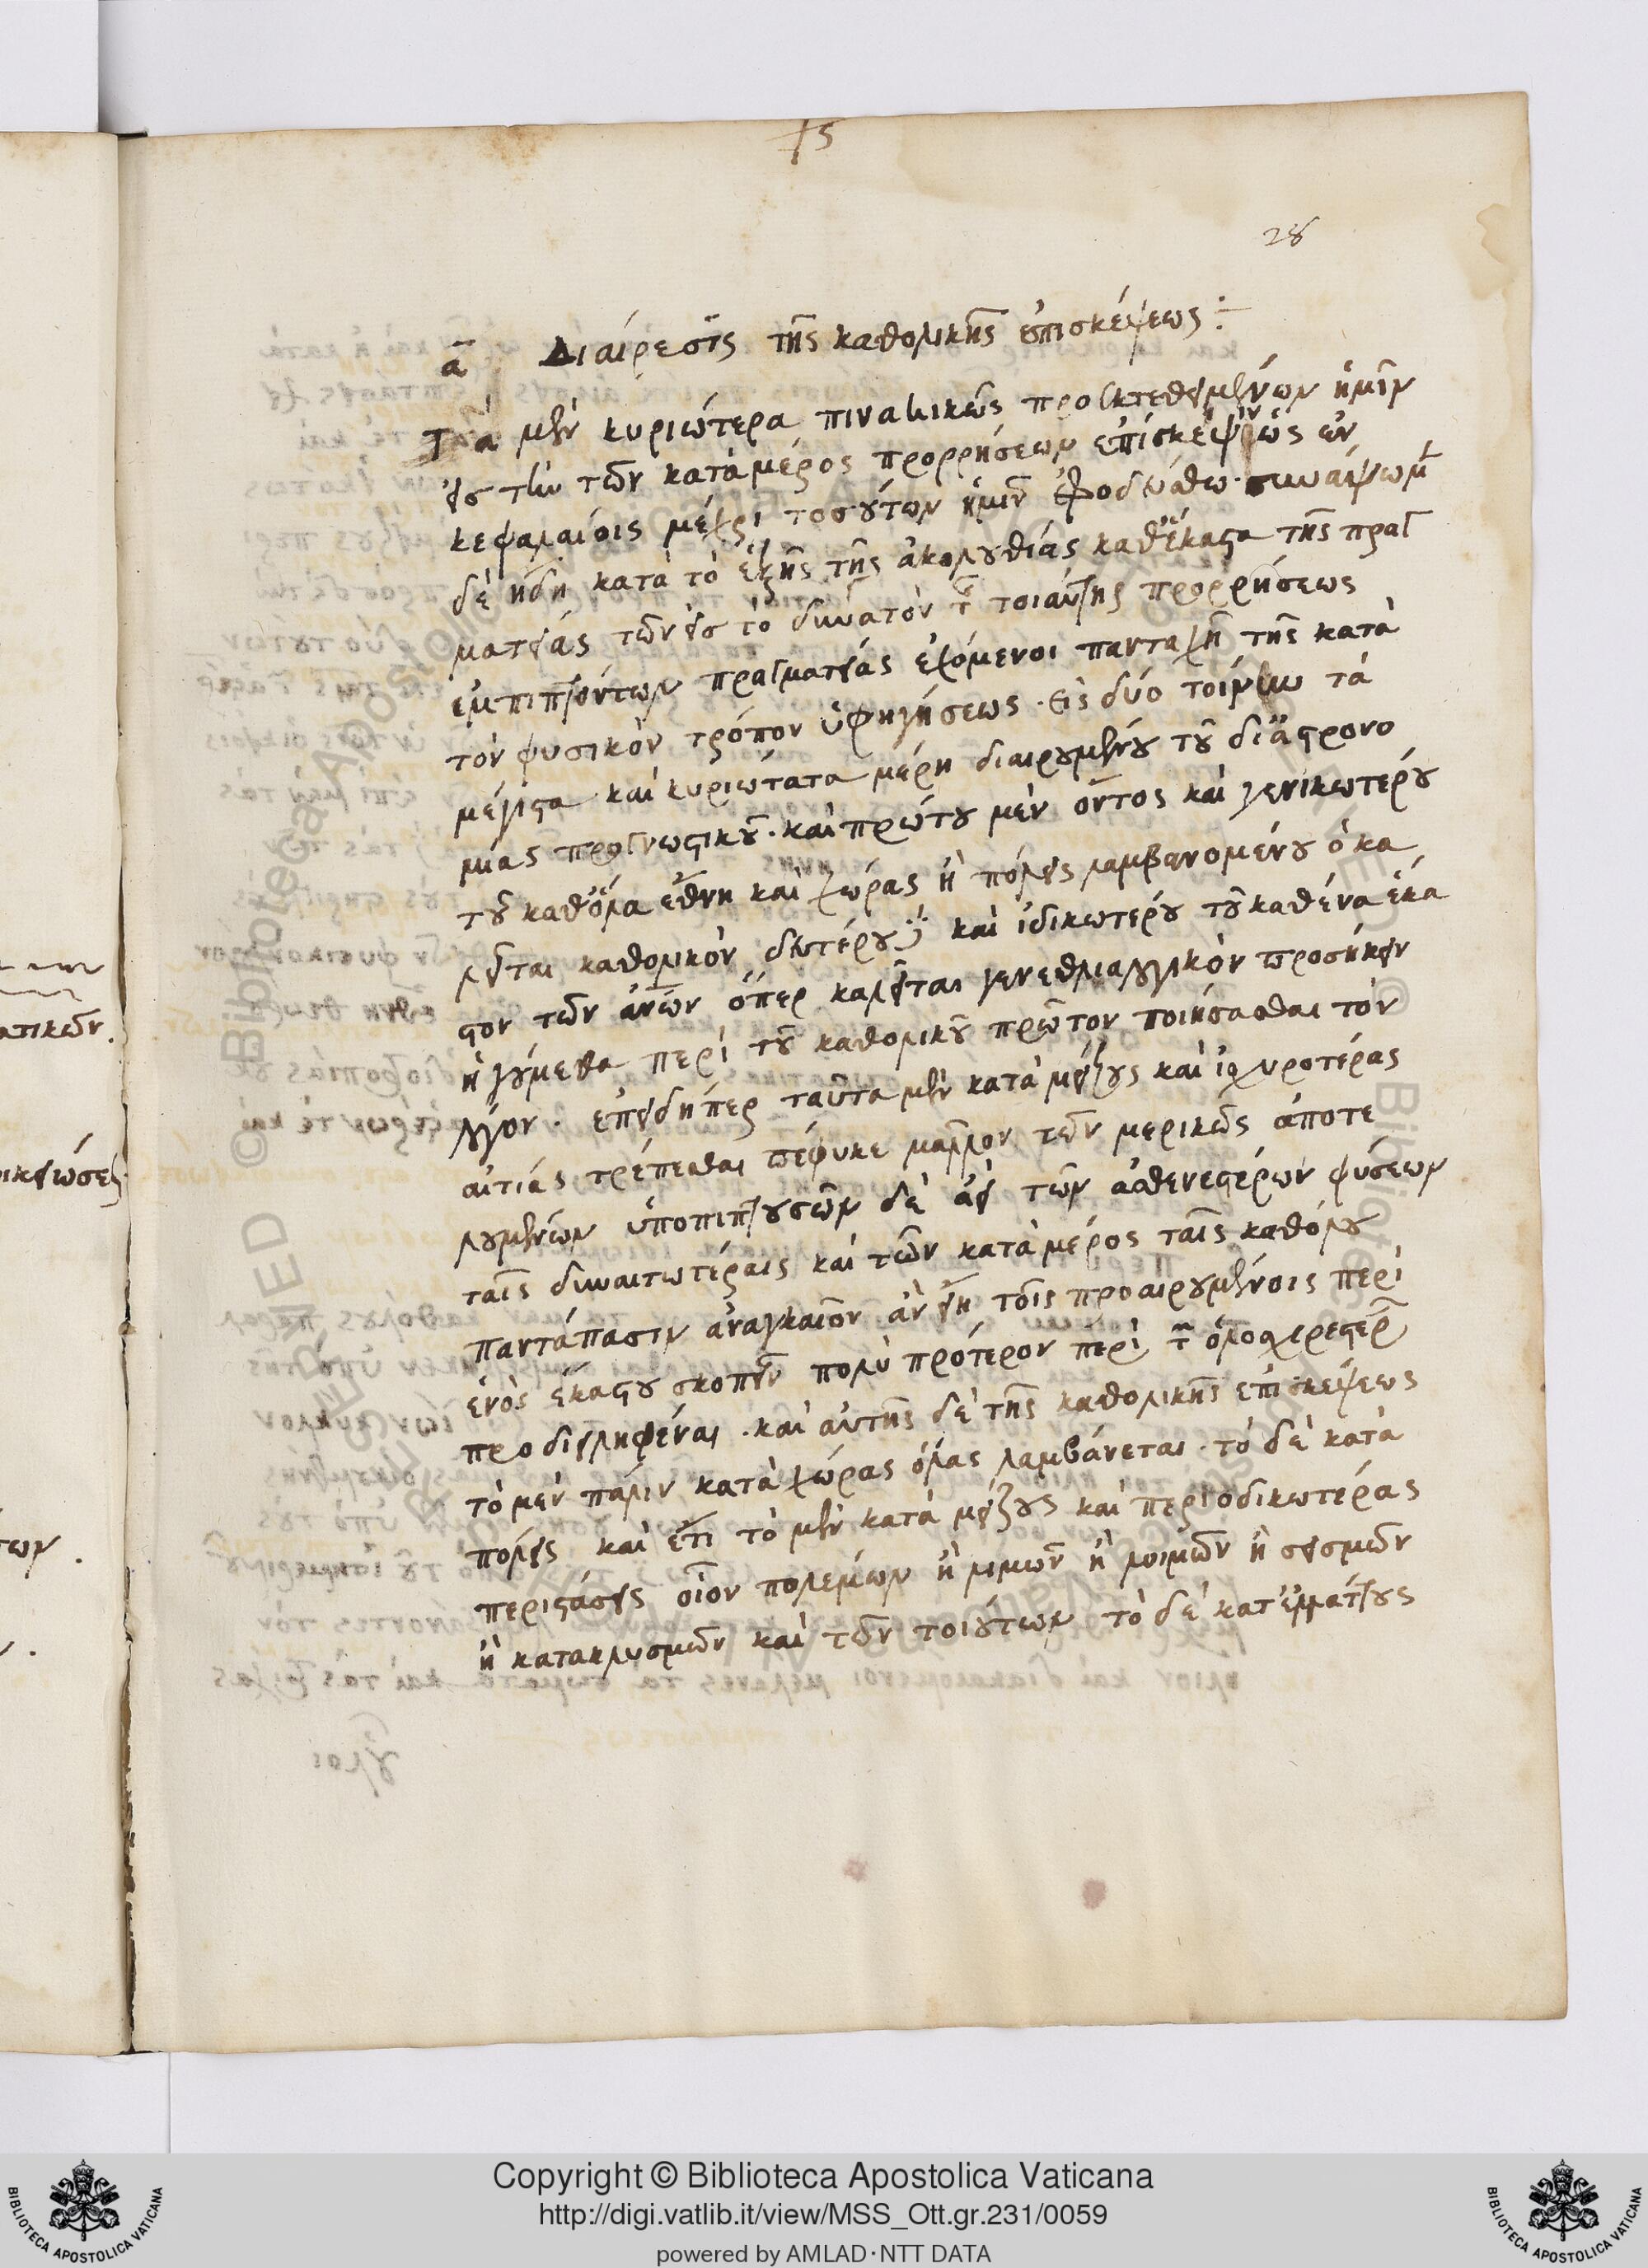 †5
28
α̅ Διαίρεσις τῆς καθολικῆς ἐπισκέψεως:
Τὰ μὲν κυριώτερα πινακικῶς προεκτεθειμένων ἡμῖν
εἰς τὴν τῶν κατὰ μέρος προρρήσεων ἐπίσκεψιν ὡς ἐν
κεφαλαίοις μέχρι τοσούτων ἡμῖν ἐφοδευέσθω. συνάψωμ̅
δὲ ἤδη κατὰ τὸ ἑξῆς τῆς ἀκολουθίας καθέκαστα τῆς πραγ
ματείας τῶν εἰς τὸ δυνατὸν τ̅ τοιαύτης προρρήσεως
ἐμπιπτόντων πραγματείας ἐχόμενοι πανταχῆ τῆς κατὰ
τὸν φυσικὸν τρόπον ὑφηγήσεως. Εἰς δύο τοίνυν τὰ
μέγιστα καὶ κυριώτατα μέρη διαιρουμένου τοῦ δι' ἀστρονο
μίας προγνωστικοῦ. καὶ πρώτου μὲν ὄντος καὶ γενικωτέρου
τοῦ καθ' ὅλα ἔθνη καὶ χώρας ἢ πόλεις λαμβανομένου ὃ κα
λεῖται καθολικὸν δευτέρου δὲ καὶ ἰδικωτέρου τοῦ καθ' ἕνα ἕκα
στον τῶν ἀν̅ων ὅπερ καλεῖται γενεθλιαλογικὸν προσήκειν
ἡγούμεθα περὶ τοῦ καθολικοῦ πρῶτον ποιήσασθαι τὸν
λόγον. ἐπειδήπερ ταῦτα μὲν κατὰ μείζους καὶ ἰσχυροτέρας
αἰτίας τρέπεσθαι πέφυκε μᾶλλον τῶν μερικῶς ἀποτε
λουμένων ὑποπιπτουσῶν δὲ ἀεὶ τῶν ἀσθενεστέρων φύσεων
ταῖς δυνατωτέραις καὶ τῶν κατὰ μέρος ταῖς καθόλου
παντάπασιν ἀναγκαῖον ἂν εἴη τοῖς προαιρουμένοις περὶ
ἑνὸς ἑκάστου σκοπεῖν πολὺ πρότερον περὶ τ̅ ὁλοσχερεστέρ̅
προδιειληφέναι. καὶ αὐτῆς δὲ τῆς καθολικῆς ἐπισκέψεως
τὸ μὲν πάλιν κατὰ χώρας ὅλας λαμβάνεται. τὸ δὲ κατὰ
πόλεις καὶ ἔτι τὸ μὲν κατὰ μείζους καὶ περιοδικωτέρας
περιστάσεις οἷον πολέμων ἢ λιμῶν ἢ λοιμῶν ἢ σεισμῶν
ἢ κατακλυσμῶν καὶ τῶν τοιούτων τὸ δὲ κατ' ἐλάττους
Copyright © Biblioteca Apostolica Vaticana
http://digi.vatlib.it/view/MSS_Ott.gr.231/0059
powered by AMLAD·NTT DATA
BIBLIOTECA APOSTOLICA VATICANA
BIBLIOTECA APOSTOLICA VATICANA